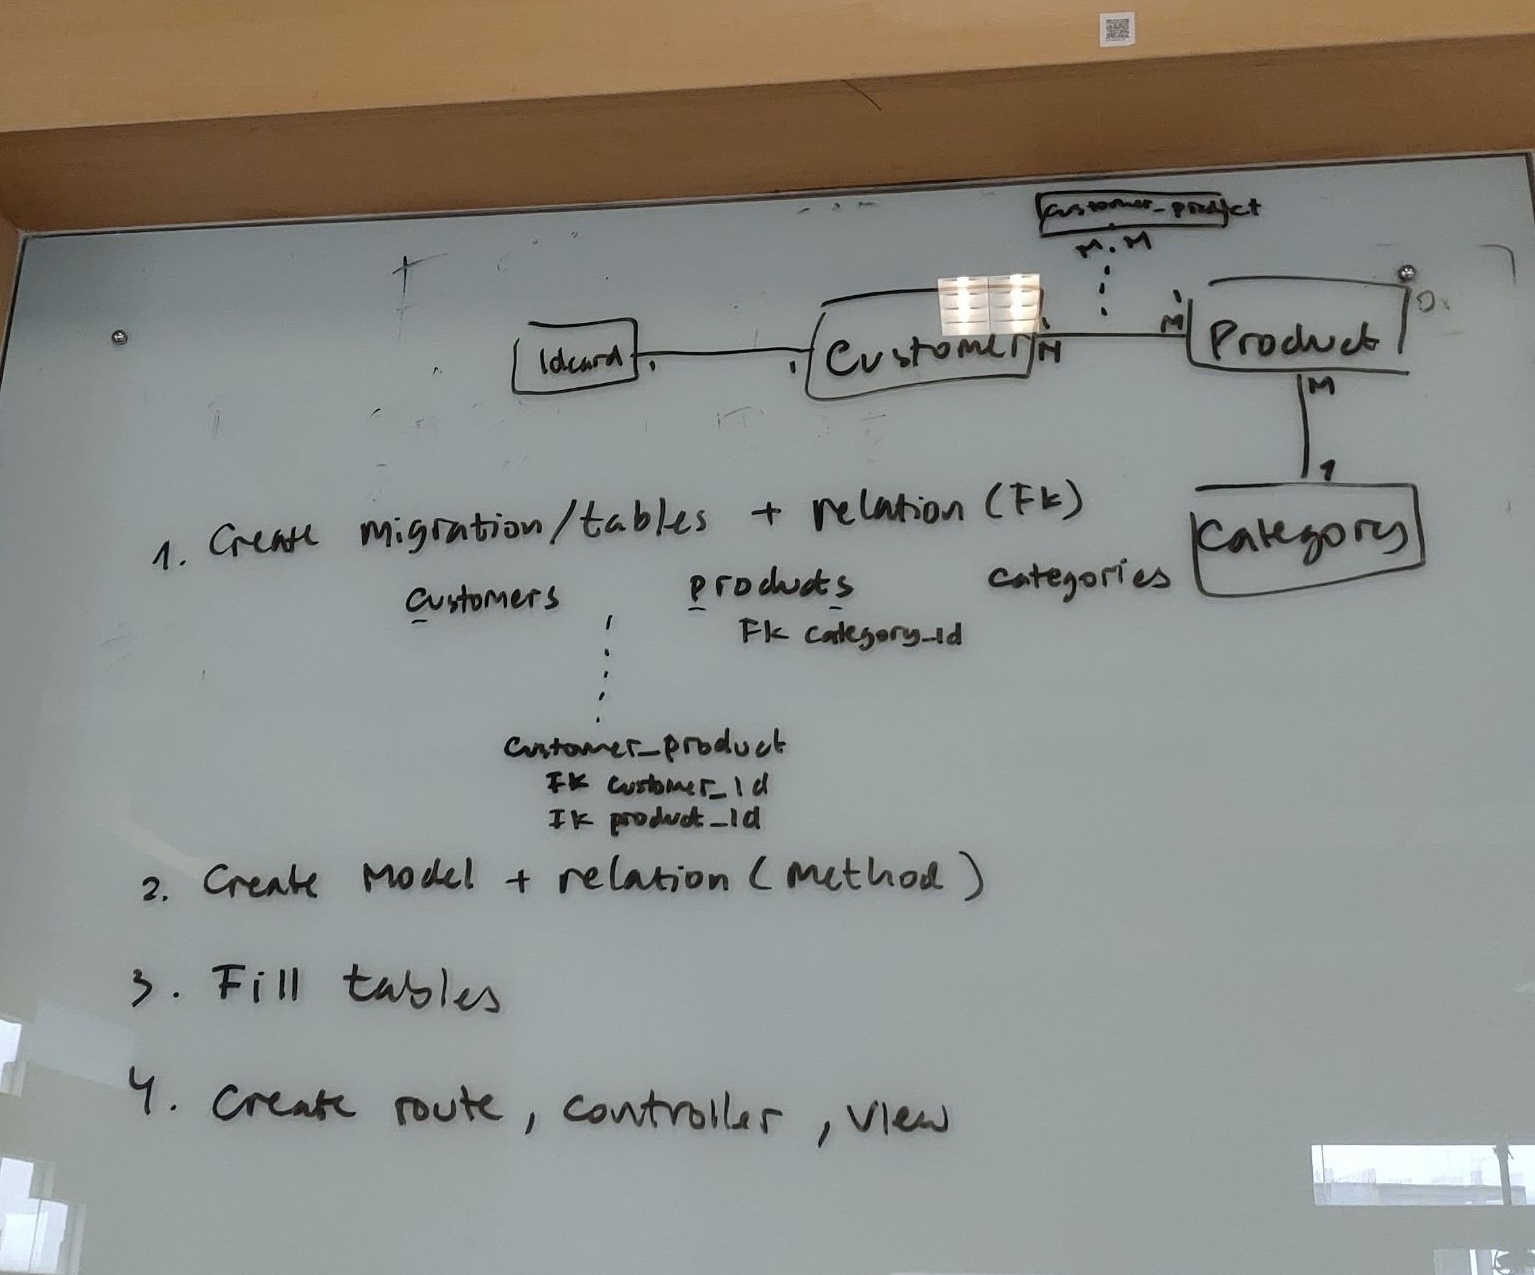 customer_product
M.M
Idcard 1 1 Customer M M Product
M
1
Category
1. Create migration/tables + relation (FK)
customers products categories
FK category_id
customer_product
FK customer_id
FK product_id
2. Create Model + relation (method)
3. Fill tables
4. Create route, controller, view